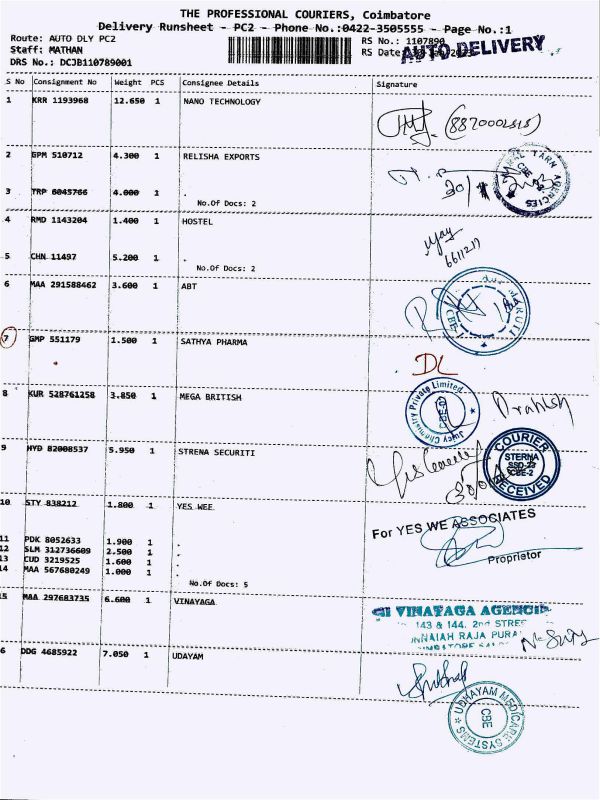 THE PROFESSIONAL COURIERS, Coimbatore
Delivery Runsheet - PC2 - Phone No.:0422-3505555 - Page No.:1
Route: AUTO DLY PC2
RS No.: 1107890
Staff: MATHAN
RS Date:
AUTO DELIVERY
DRS No.: DCJB110789001
S No Consignment No Weight PCS Consignee Details Signature
1 KRR 1193968 12.650 1 NANO TECHNOLOGY
2 GPM 510712 4.300 1 RELISHA EXPORTS
30/1
TARN AGENCIES
CBE
3 TRP 6045766 4.000 1 .
No.Of Docs: 2
4 RMD 1143204 1.400 1 HOSTEL
5 CHN 11497 5.200 1 .
No.Of Docs: 2
6 MAA 291588462 3.600 1 ABT
MARUTI
CBE
7 GMP 551179 1.500 1 SATHYA PHARMA
DL
8 KUR 528761258 3.850 1 MEGA BRITISH
Juicy Chemistry Private Limited
Prakash
9 HYD 82008537 5.950 1 STRENA SECURITI
COURIER
STERNA
SSD-23
CBE-2
RECEIVED
10 STY 838212 1.800 1 YES WEE
For YES WE ASSOCIATES
Proprietor
11 PDK 8052633 1.900 1 .
12 SLM 312736609 2.500 1 .
13 CUD 3219525 1.600 1 .
14 MAA 567680249 1.000 1 .
No.Of Docs: 5
15 MAA 297683735 6.600 1 VINAYAGA
VINAYAGA AGENCIE
143 & 144, 2nd STREE
NNAIAH RAJA PURA
6 DDG 4685922 7.050 1 UDAYAM
UDHAYAM MEDICARE SYSTEMS
CBE